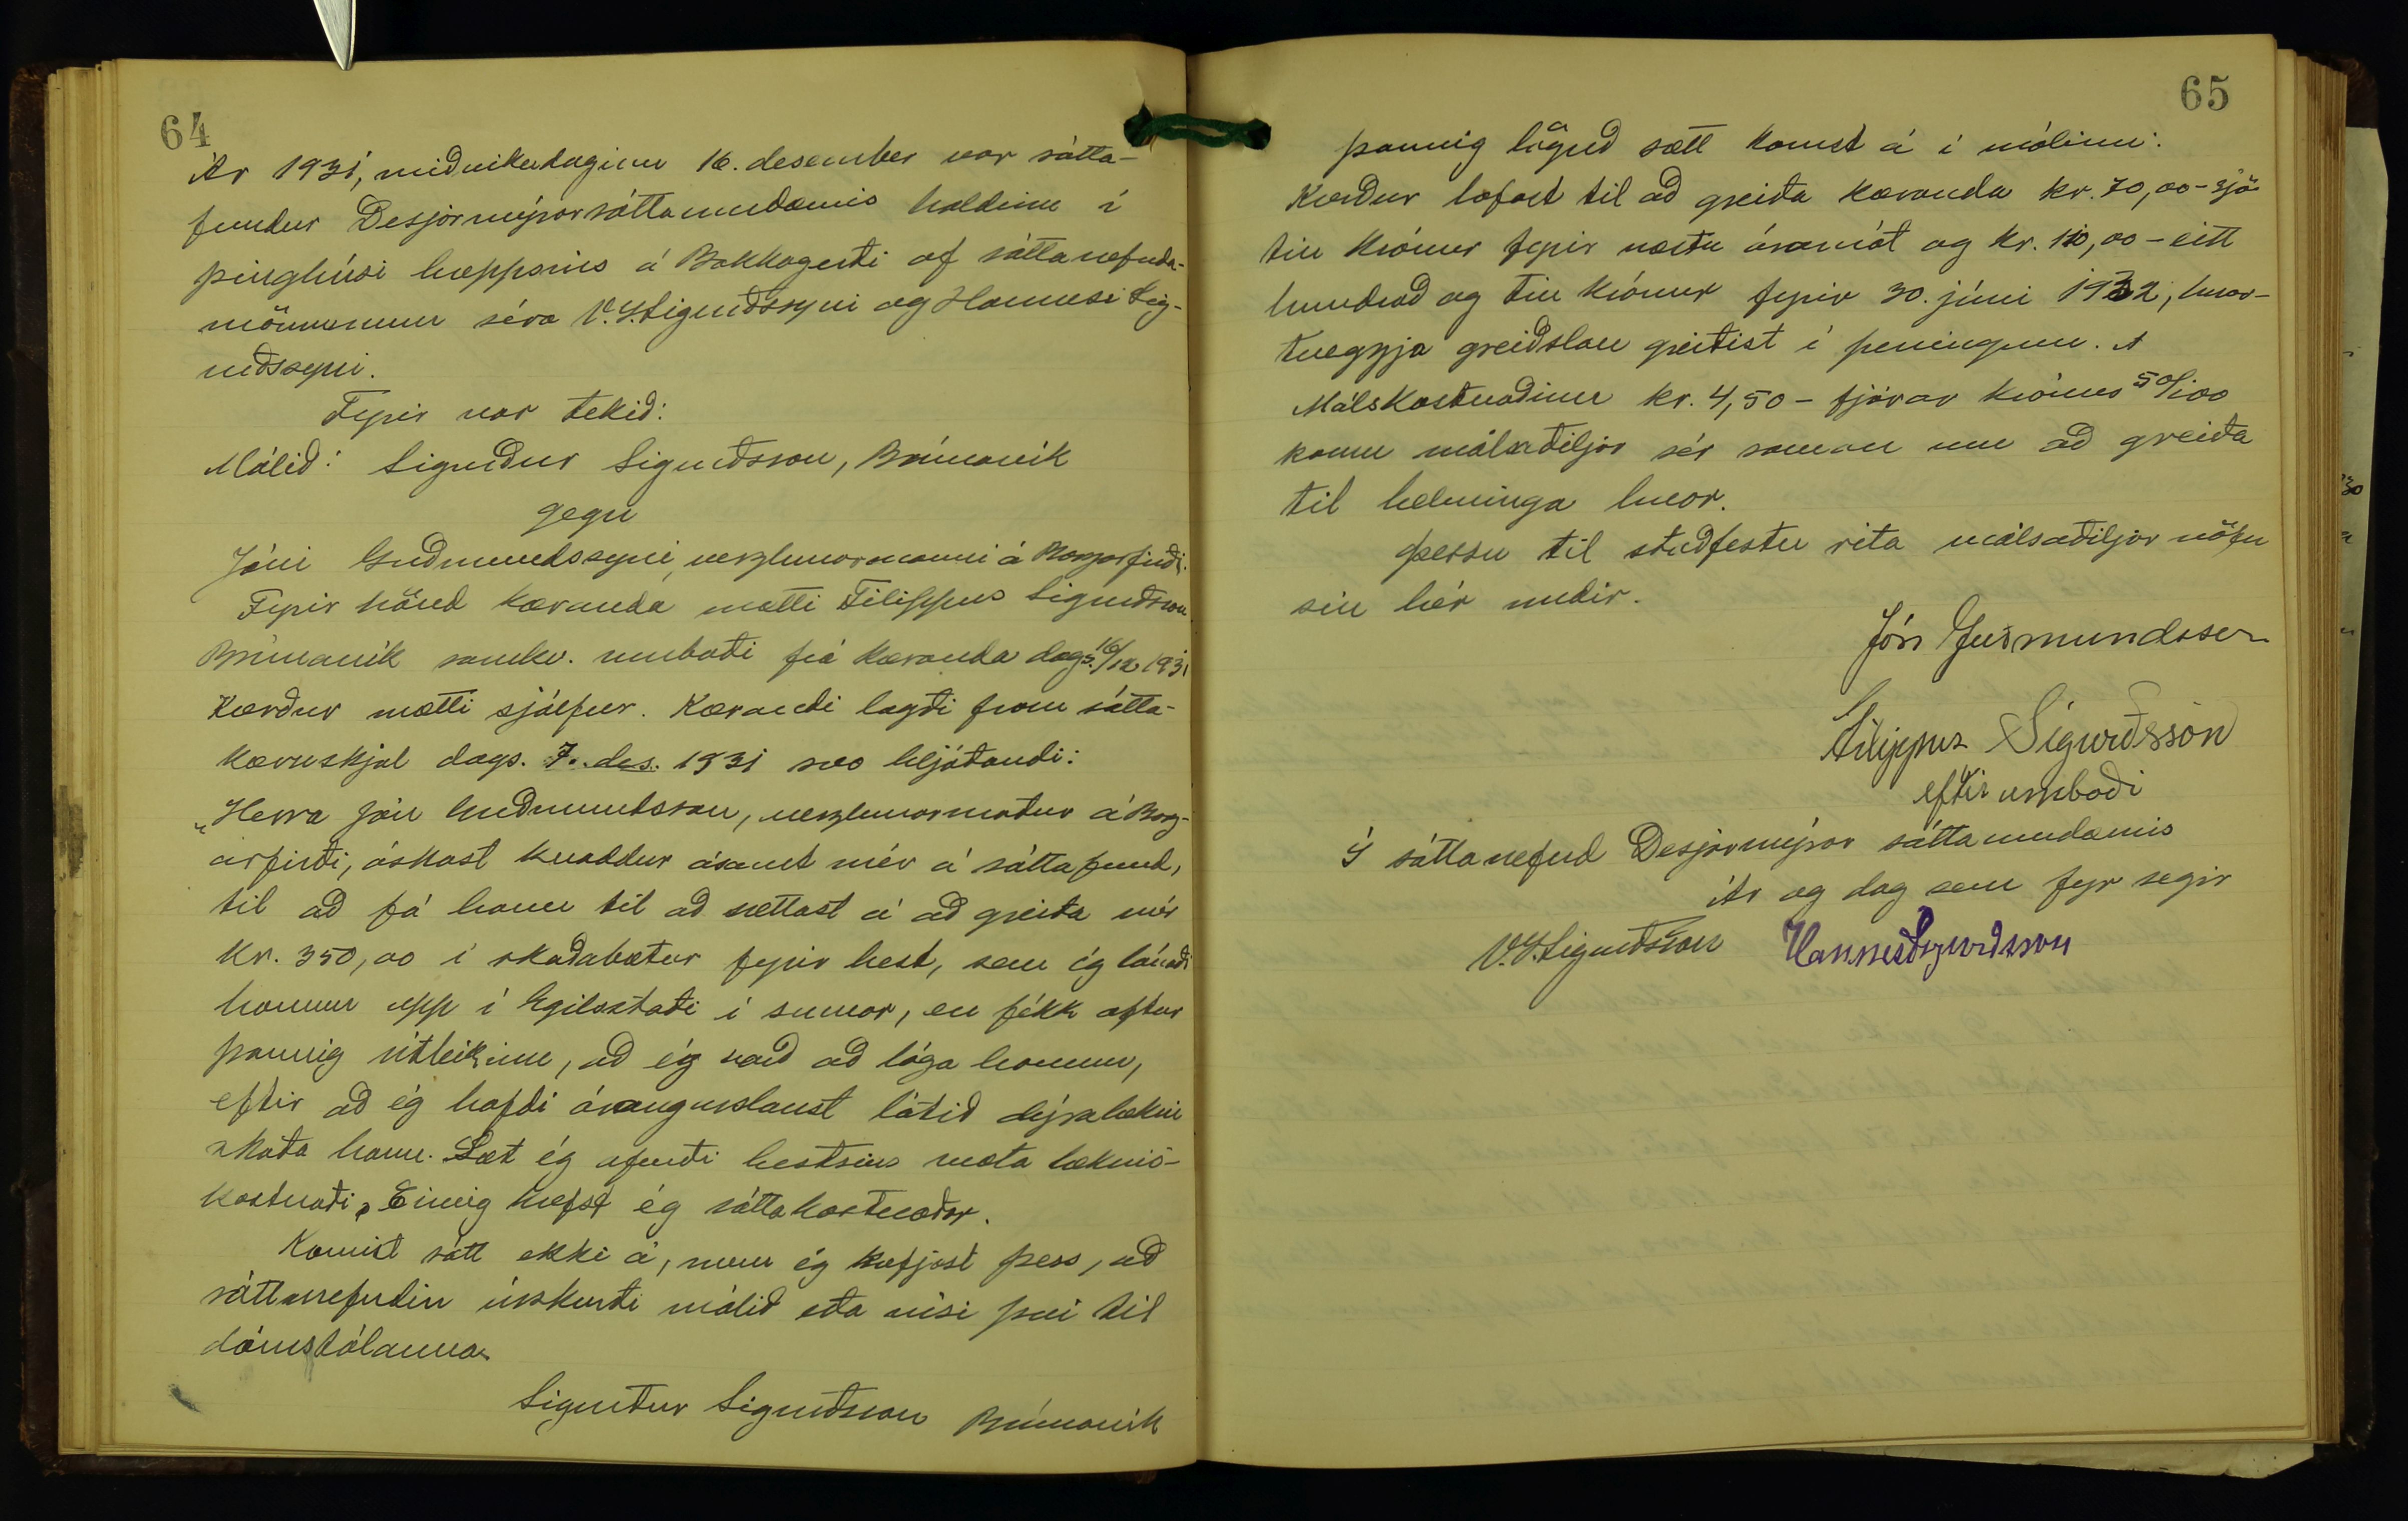 64
Ár 1931, miðvikudaginn 16. desember var sátta-
fundur Desjarmýrarsáttaumdæmis haldinn í
þinghúsi hreppsins á Bakkagerði af sáttanefnda-
mönnunum séra V.S. Sigurðssyni og Hannesi Sig-
urðssyni.
Fyrir var tekið:
Málið: Sigurður Sigurðsson, Brúnavík
gegn
Jóni Guðmundssyni, verzlunarmanni á Borgarfirði.
Fyrir hönd kæranda mætti Filippus Sigurðsson
Brúnavík samkv. umboði frá kæranda dags. 16/12 1931
Kærður mætti sjálfur. Kærandi lagði fram sátta-
kæruskjal dags. 7. des. 1931 svo hljóðandi:
„Herra Jón Guðmundsson, verzlunarmaður á Borg-
arfirði, óskast kvaddur ásamt mér á sáttafund,
til að fá hann til að sættast á að greiða mér
kr. 350,00 í skaðabætur fyrir hest, sem ég lánaði
honum upp í Egilsstaði í sumar, en fékk aftur
þannig útleikinn, að ég varð að lóga honum,
eftir að ég hafði árangurslaust látið dýralækni
skoða hann. Læt ég afurði hestsins mæta læknis-
kostnaði. Einnig krefst ég sáttakostnaðar.
Komist sátt ekki á, mun ég krefjast þess, að
sáttanefndin úrskurði málið eða vísi því til
dómstólanna.
Sigurður Sigurðsson Brúnavík
65
þannig löguð sætt komst á í málinu:
Kærður lofast til að greiða kæranda kr. 70,00 - sjö
tíu krónur fyrir næstu áramót og kr. 110,00 - eitt
hundrað og tíu krónur fyrir 30. júní 1932, hvor-
tveggja greiðslan greiðist í peningum. A
Málskostnaðinn kr. 4,50 - fjórar krónur 50/100
komu málsaðiljar sér saman um að greiða
til helminga hvor.
Þessu til staðfestu rita málsaðiljar nöfn
sín hér undir.
Jón Guðmundsson
Filippus Sigurðsson
eftir umboði
Í sáttanefnd Desjarmýrar sáttaumdæmis
Ár og dag sem fyr segir
V.S. Sigurðsson Hannes Sigurðsson
30